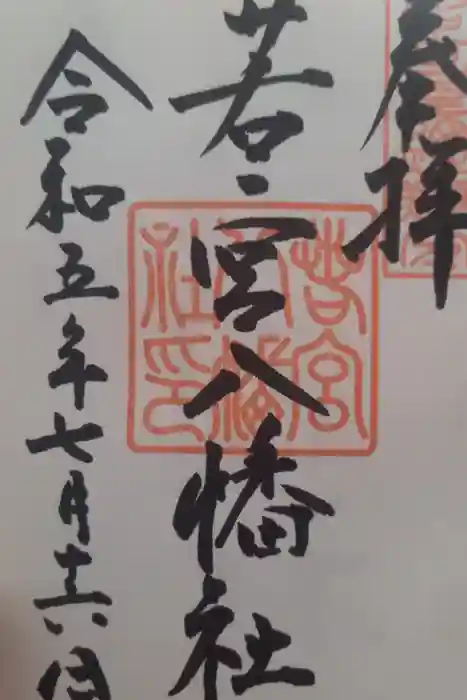 奉拝
若宮八幡社
令和五年七月十六日
若宮八幡社印